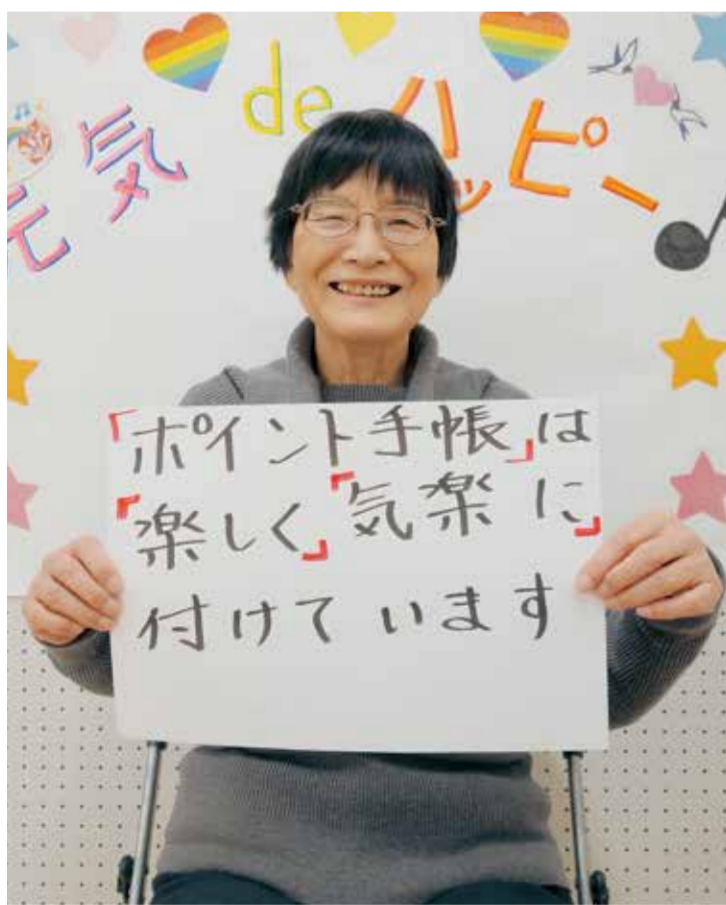 元気 de ハッピー
「ポイント手帳」は
「楽しく」「気楽に」
付けています